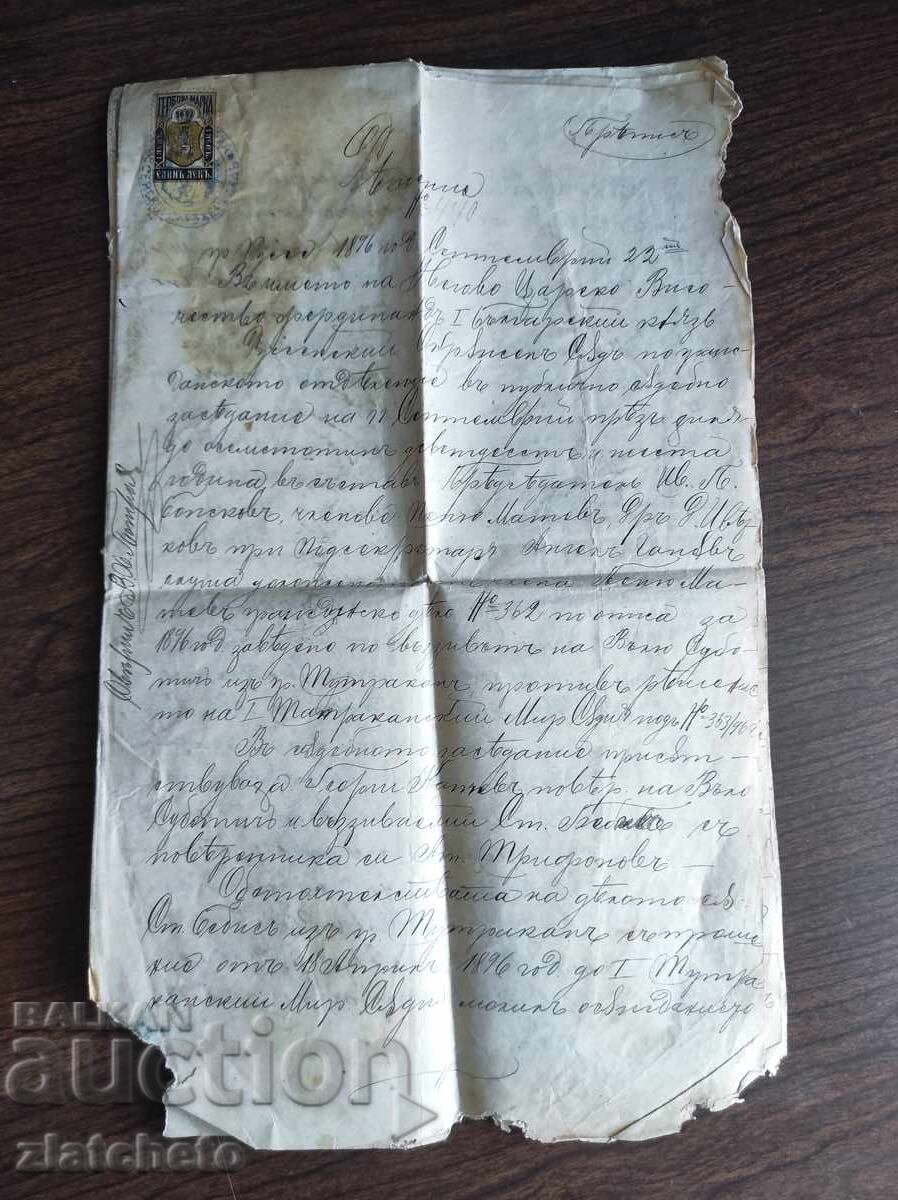 ГЕРБОВА МАРКА
ЕДИНЪ ЛЕВЪ
Прѣписъ
№ 440
гр. Русе 1896 год. Септемврий 22
Въ името на Негово Царско Висо-
чество Фердинандъ I Български князъ
Русенский Окрѫженъ Сѫдъ по угла-
отдѣление въ публично сѫдебно
заседание на 11 Септемврий прѣзъ хиля-
до осемстотинъ деветдесетъ и шеста
година въ съставъ: Прѣдседателъ Ив. П.
членове Пеню Матевъ, Д-ръ Д. Цвѣт-
ковъ при Подсекретаръ Ангелъ
слуша Пеню Ма-
тевъ гражданско дѣло № 362 по описа за
1896 год. заведено по възивътъ на Вълю Субо-
тиго изъ гр. Тутраканъ, противъ рѣшение-
то на I Тутраканский Мир. Сѫдия подъ № 353/96 г.
Въ сѫдебното заседание присѫт-
ствуваха Георги повѣр. на Вълю
Суботиго и възиваемий Ст. съ
повѣренника си Ат. Трифоновъ —
Обстоятелствата на дѣлото сѫ:
Ст. изъ гр. Тутраканъ съ проше-
ние отъ 18 Априлъ 1896 год. до I Тутра-
канский Мир. Сѫдия молилъ осѫждането
BALKAN
auction
zlatcheto